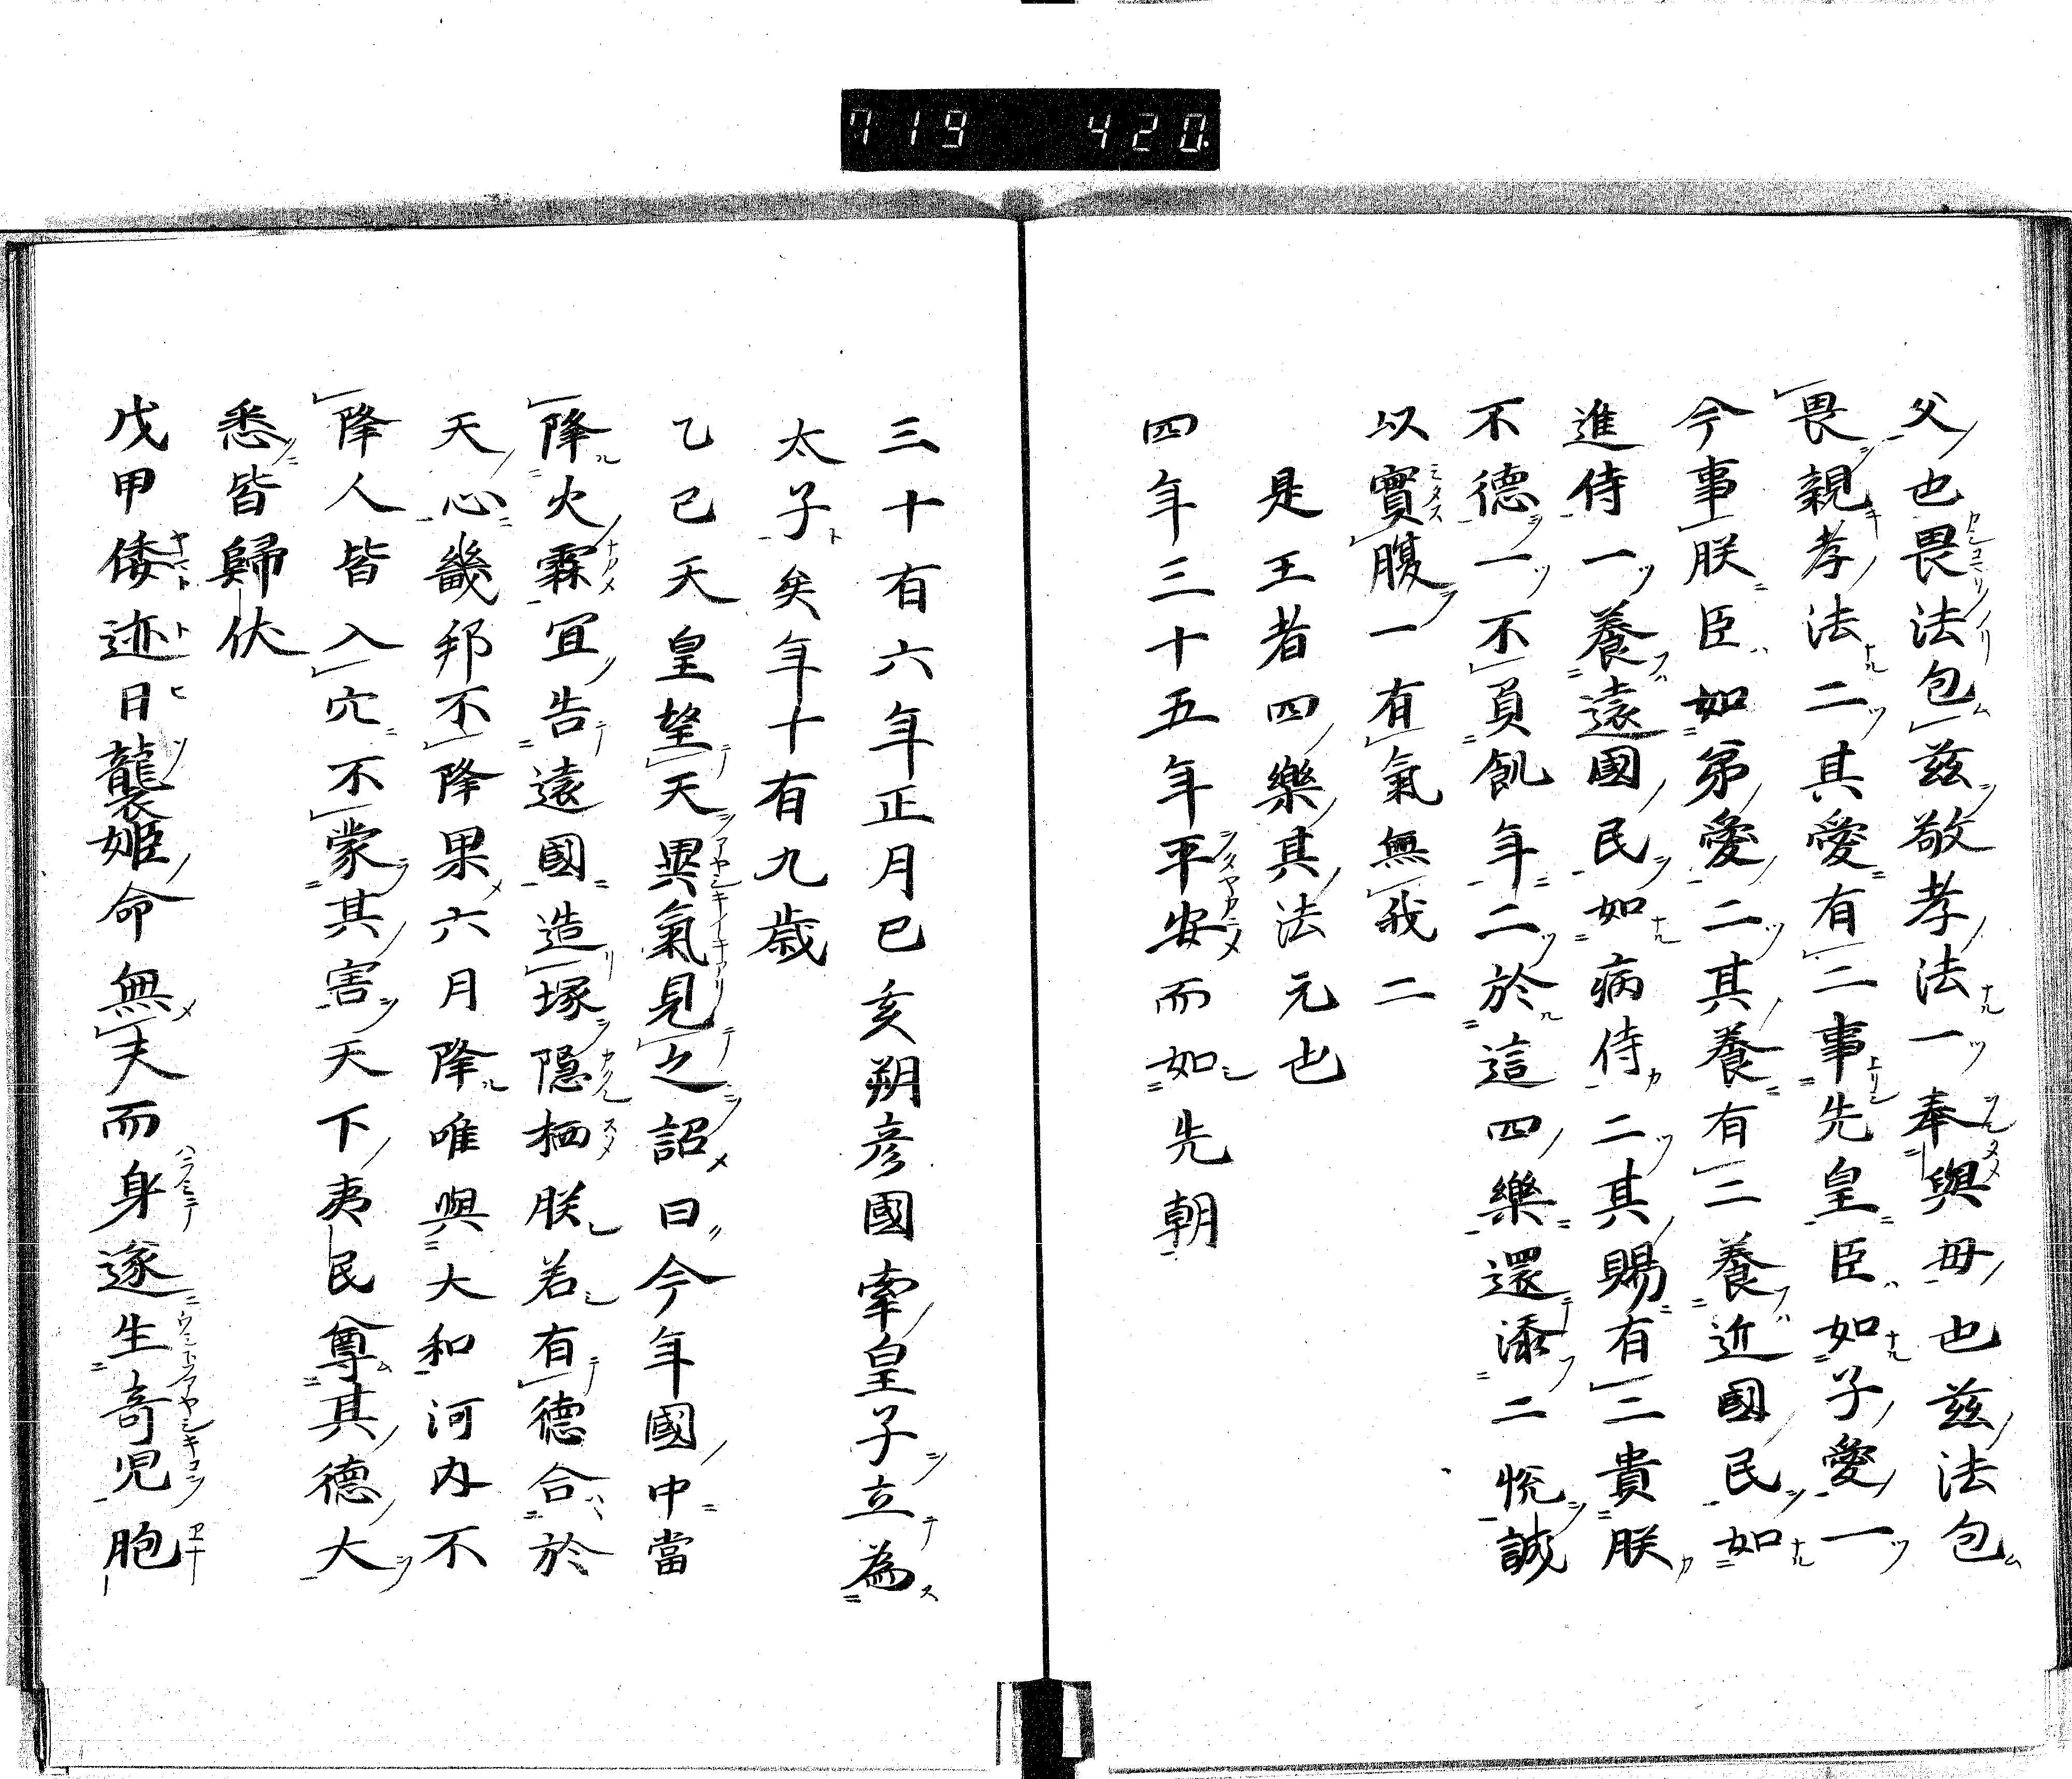 719 420
父也畏法包茲敬孝法一奉與母也茲法包
畏親孝法二其愛有二事先皇臣如子愛一
今事朕臣如弟愛二其養有二養近國民如
進侍一養遠國民如病侍二其賜有二貴朕
不德一不負飢年二於這四樂還添二悦誠
以實腹一有氣無我二
是王者四樂其法元也
四年三十五年平安而如先朝
三十有六年正月已亥朔彦國牽皇子立為
太子矣年十有九歳
乙已天皇望天異氣見之詔曰今年國中當
降火霖宜告遠國造塚隠栖朕若有德合於
天心畿邦不降果六月降唯與大和河内不
降人皆入穴不蒙其害天下夷民尊其德大
悉皆歸伏
戊甲倭迹日襲姫命無夫而身遂生奇児胞